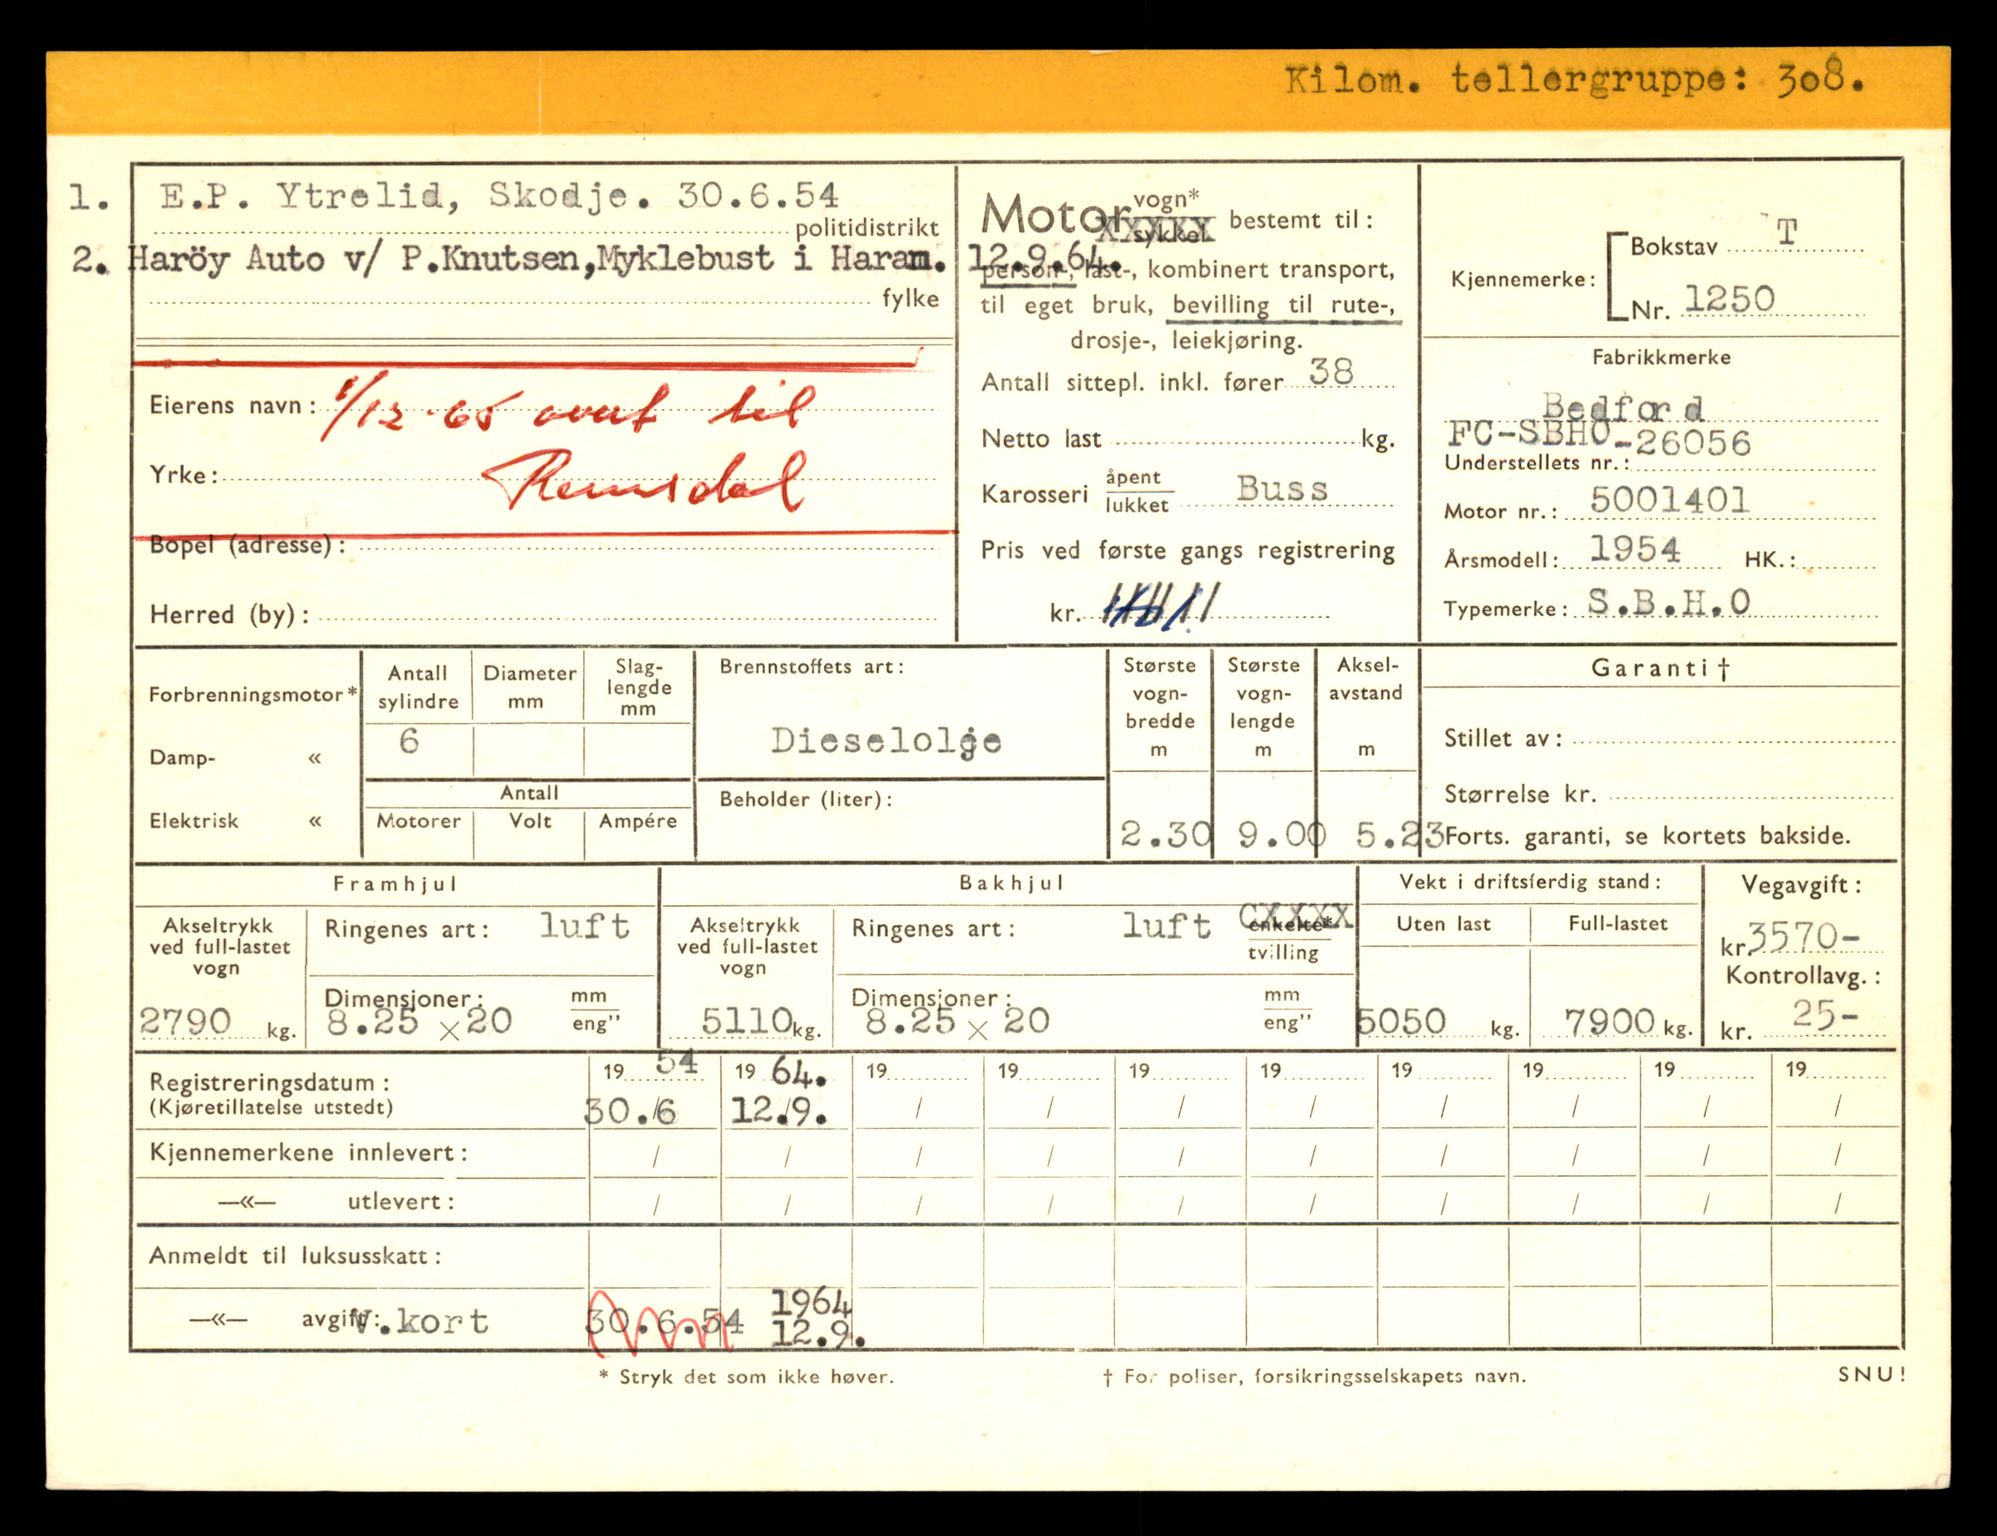 Kilom. tellergruppe: 308.
1. E.P. Ytrelid, Skodje. 30.6.54
politidistrikt
2. Haröy Auto v/ P.Knutsen,Myklebust i Haram. 12.9.64.
fylke
Eierens navn: 1/12-65 overf til
Yrke: Remsdal
Bopel (adresse):
Herred (by):
Motor vogn* sykkel XXXXX bestemt til:
person-, last-, kombinert transport,
til eget bruk, bevilling til rute-,
drosje-, leiekjøring.
Antall sittepl. inkl. fører 38
Netto last kg.
Karosseri åpent lukket Buss
Pris ved første gangs registrering
kr.
Kjennemerke: Bokstav T
Nr. 1250
Fabrikkmerke
Bedford
FC-SBHO-26056
Understellets nr.:
Motor nr.: 5001401
Årsmodell: 1954 HK.:
Typemerke: S.B.H.O
Forbrenningsmotor*
Damp- «
Elektrisk «
Antall sylindre
Diameter mm
Slag-lengde mm
6
Antall
Motorer Volt Ampére
Brennstoffets art:
Dieselolje
Beholder (liter):
Største vogn-bredde m
Største vogn-lengde m
Aksel-avstand m
2.30 9.00 5.23
Garanti †
Stillet av:
Størrelse kr.
Forts. garanti, se kortets bakside.
Framhjul
Akseltrykk ved full-lastet vogn
2790 kg.
Ringenes art: luft
Dimensjoner: mm eng”
8.25 × 20
Bakhjul
Akseltrykk ved full-lastet vogn
5110 kg.
Ringenes art: luft enkelte* CXXXX tvilling
Dimensjoner: mm eng”
8.25 × 20
Vekt i driftsferdig stand:
Uten last Full-lastet
5050 kg. 7900 kg.
Vegavgift:
kr. 3570-
Kontrollavg.:
kr. 25-
Registreringsdatum: 19 54 19 64. 19 19 19 19 19 19 19 19
(Kjøretillatelse utstedt) 30./6 12./9. / / / / / / / /
Kjennemerkene innlevert: / / / / / / / / / /
—«— utlevert: / / / / / / / / / /
Anmeldt til luksusskatt:
—«— avgift: v.kort 30.6.54 1964
12.9.
* Stryk det som ikke høver.
† For poliser, forsikringsselskapets navn.
SNU!